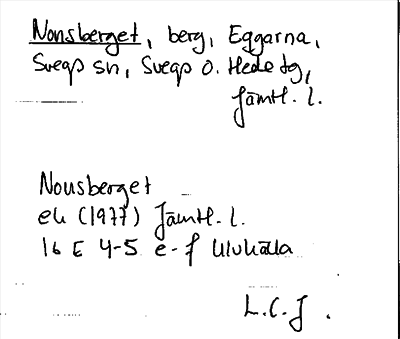 Nonsberget, berg, Eggarna,
Svegs sn, Svegs o. Hede tg,
Jämtl. l.
Nonsberget
ek (1977) Jämtl. l.
16 E 4-5 e-f Ulvkälla
L.C.J.